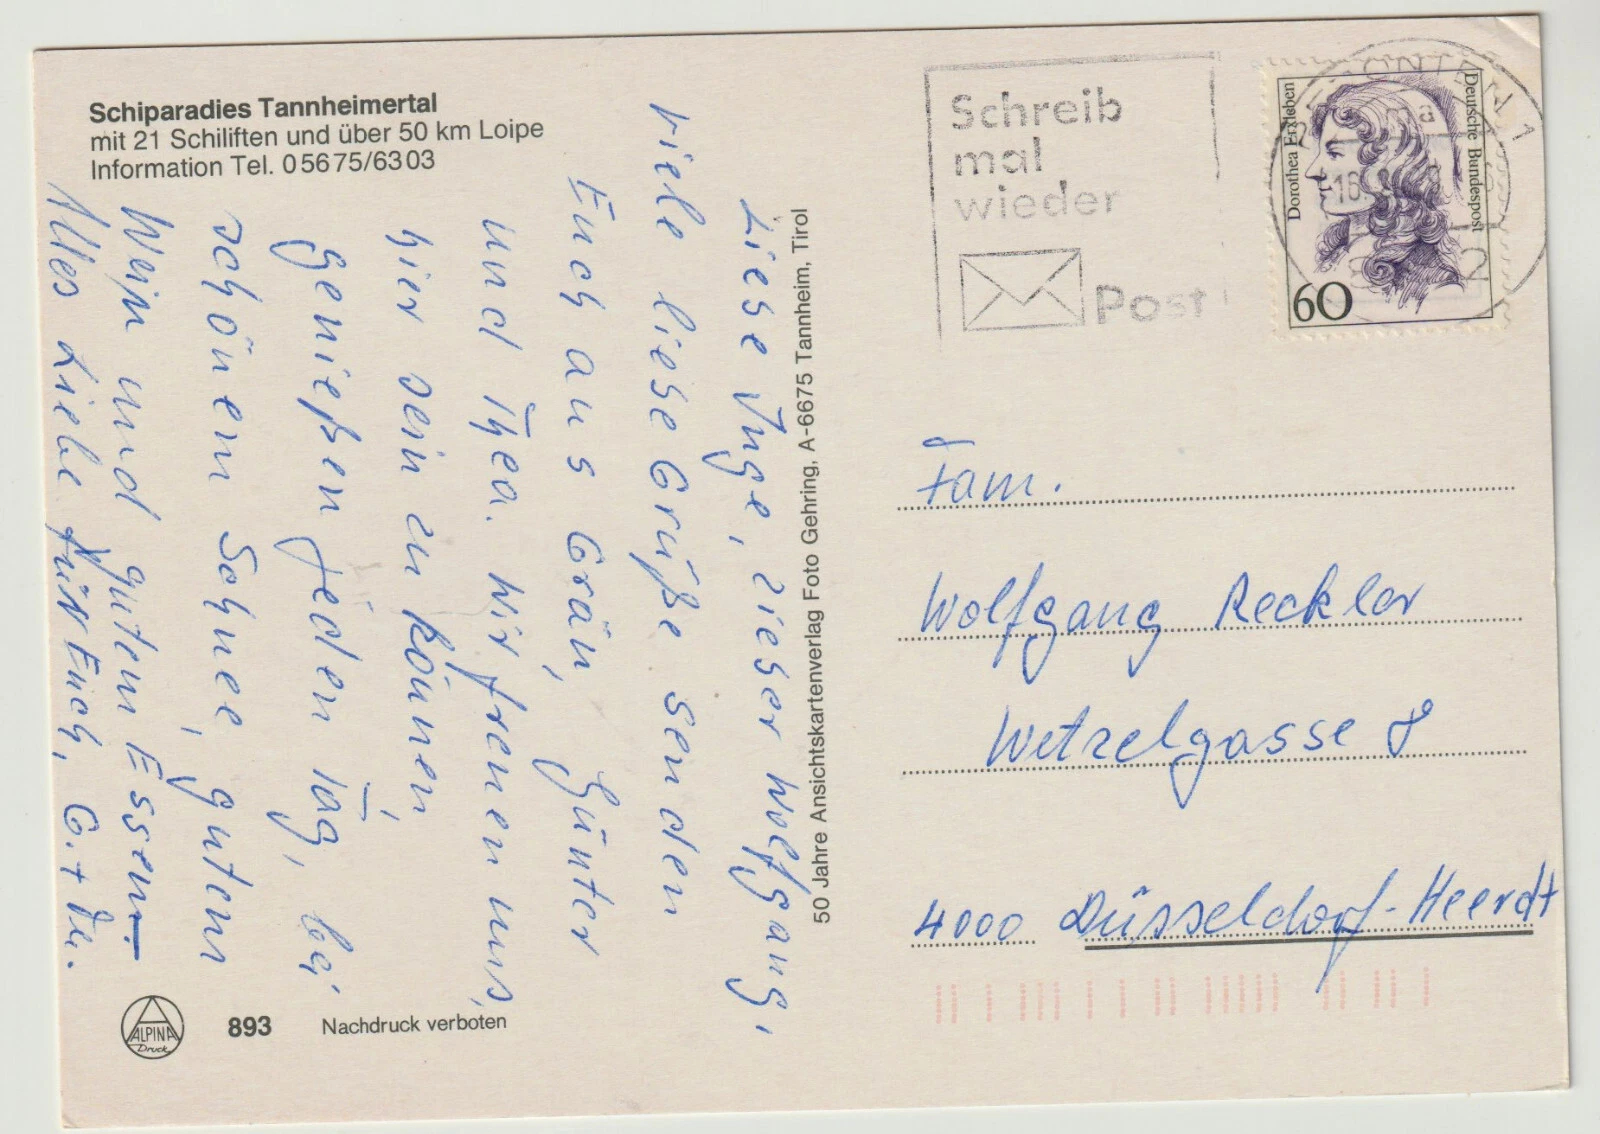 Schiparadies Tannheimertal
mit 21 Schiliften und über 50 km Loipe
Information Tel. 05675/6303
Liebe Inge, lieber Wolfgang,
viele liebe Grüße senden
Euch aus Grän, Günter
und Thea. Wir freuen uns,
hier sein zu können,
genießen jeden Tag, bei
schönem Schnee, gutem
Wein und gutem Essen.
Alles Liebe für Euch, G. +
ALPINA
Druck
893
Nachdruck verboten
50 Jahre Ansichtskartenverlag Foto Gehring, A-6675 Tannheim, Tirol
Schreib
mal
wieder
Post
Dorothea Erxleben
Deutsche Bundespost
60
Fam.
Wolfgang Reckler
Wetzelgasse 8
4000 Düsseldorf-Heerdt